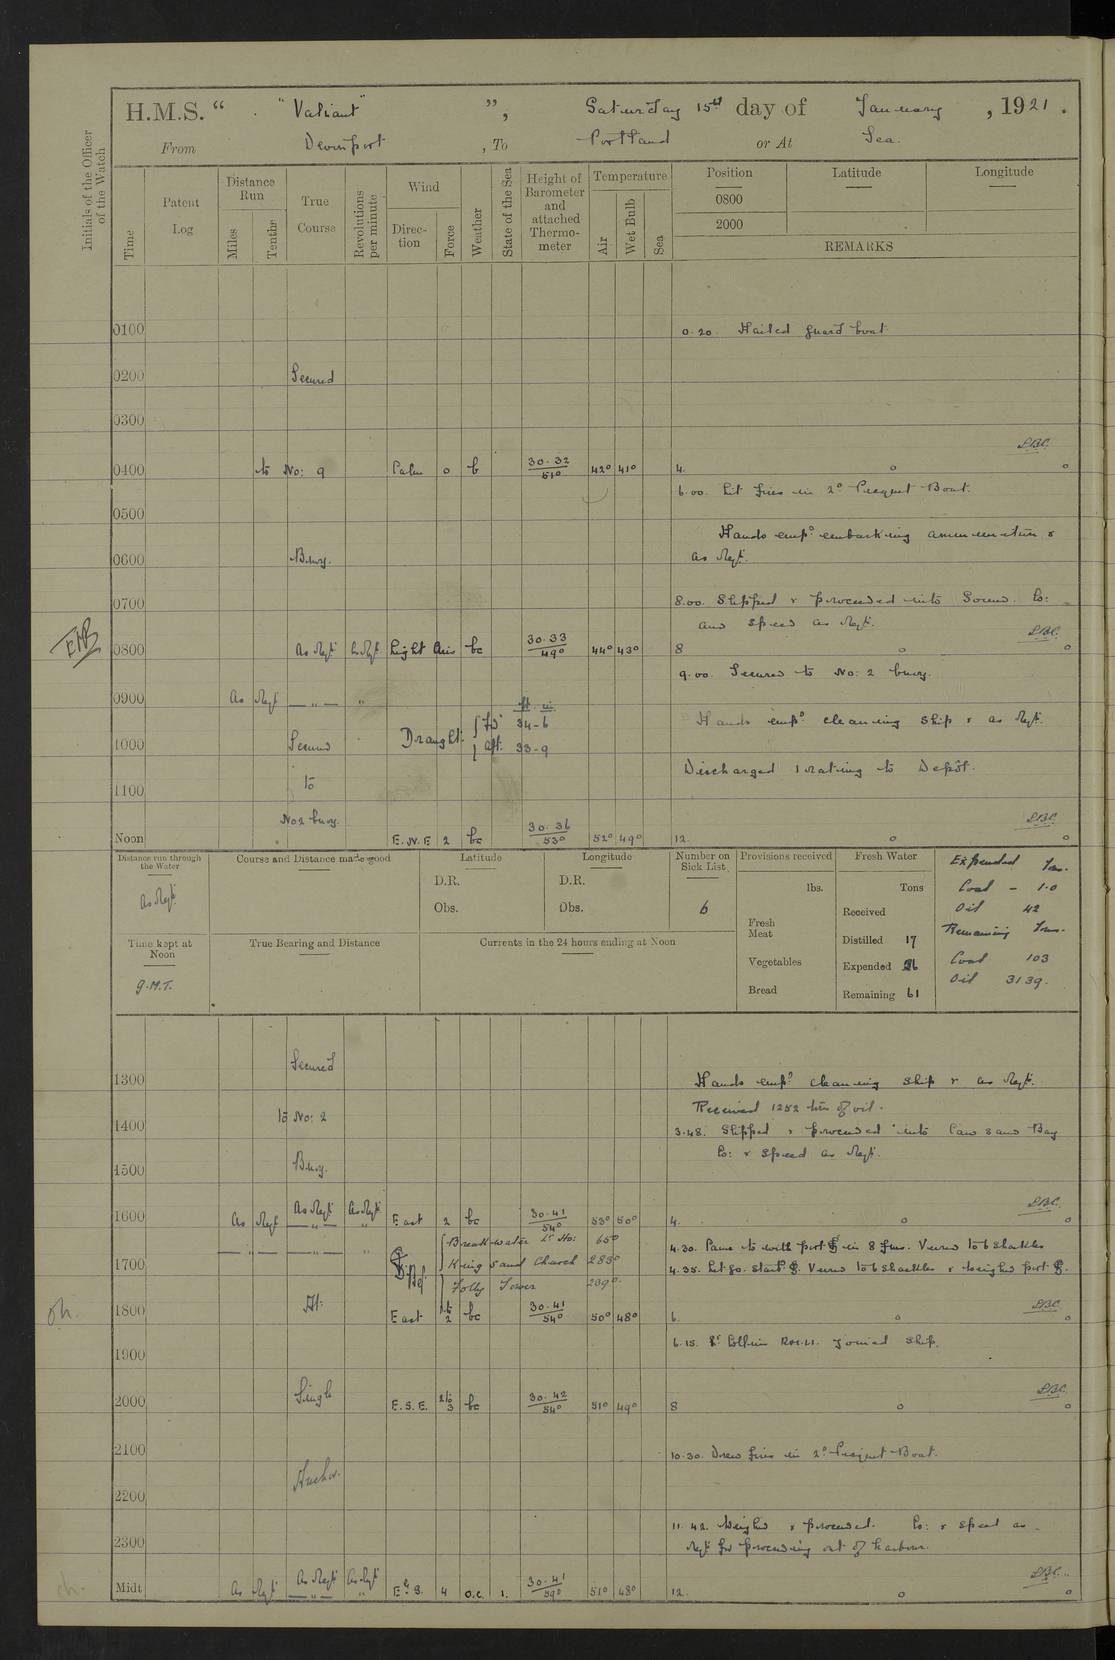 H.M.S. " "Valiant" ", Saturday 15th day of January, 1921.
From Devonport, To Portland or At Sea.
Initials of the Officer of the Watch
Time
Patent Log
Distance Run
Miles
Tenths
True Course
Revolutions per minute
Wind
Direction
Force
Weather
State of the Sea
Height of Barometer and attached Thermometer
Temperature
Air
Wet Bulb
Sea
Position Latitude Longitude
0800
2000
REMARKS
0100 0.20. Hailed guard boat
0200 Secured
0300
LBC.
0400 to No: 9 Calm 0 b 30.32 51° 42° 41° 4. 0 0
6.00. Lit fires in 2° Picquet Boat.
0500
Hands emp° embarking ammunition &
0600 Buoy. as Reqt.
0700 8.00. Slipped & proceeded into Sound. Co:
and speed as Reqt.
LBC.
0800 As Reqt. Light Airs bc 30.33 49° 44° 43° 8 0 0
9.00. Secured to No: 2 buoy.
0900 As Reqt — " — "
ft. in.
Draught: Fd 34-6
Aft: 33-9
Hands emp° cleaning ship & as Reqt.
1000 Secured
to
Discharged 1 rating to Depôt.
1100
No 2 buoy.
LBC.
Noon E.N.E 2 bc 30.36 53° 52° 49° 12. 0 0
Distance run through the Water
As Reqt.
Course and Distance made good
Latitude
D.R.
Obs.
Longitude
D.R.
Obs.
Number on Sick List
6
Provisions received
lbs.
Fresh Meat
Vegetables
Bread
Fresh Water
Tons
Received
Distilled 17
Expended 26
Remaining 61
Expended Tons.
Coal - 1.0
Oil 42
Remaining Tons.
Coal 103
Oil 3139.
Time kept at Noon
G.M.T.
True Bearing and Distance
Currents in the 24 hours ending at Noon
Secured
1300 Hands emp° cleaning ship & as Reqt.
Received 1252 tons of oil.
to No: 2
1400 3.48. Slipped & proceeded into Cawsand Bay
Co: & Speed as Reqt.
1500 Buoy.
LBC.
1600 As Reqt As Reqt As Reqt East 2 bc 30.41 54° 53° 50° 4. 0 0
— " — — " — "
Breakwater Lt Ho: 65°
Kingsand Church 283°
Folly Tower 239°
4.30. Came to with port in 8 fms. Veered to 6 shackles
1700 4.35. Let go. starbd. Veered to 6 shackles & weighed port.
At:
LBC.
1800 East 1 to 2 bc 30.41 54° 50° 48° 6. 0 0
6.15. joined ship.
1900
Single
LBC.
2000 E.S.E. 2 to 3 bc 30.42 54° 51° 49° 8 0 0
2100 10.30. Drew fires in 2° Picquet Boat.
Anchor.
2200
11.42. Weighed & proceeded. Co: & speed as
2300 Reqt for proceeding out of harbour.
LBC.
Midt As Reqt As Reqt As Reqt E by S. 4 o.c. 1. 30.41 59° 51° 48° 12. 0 0